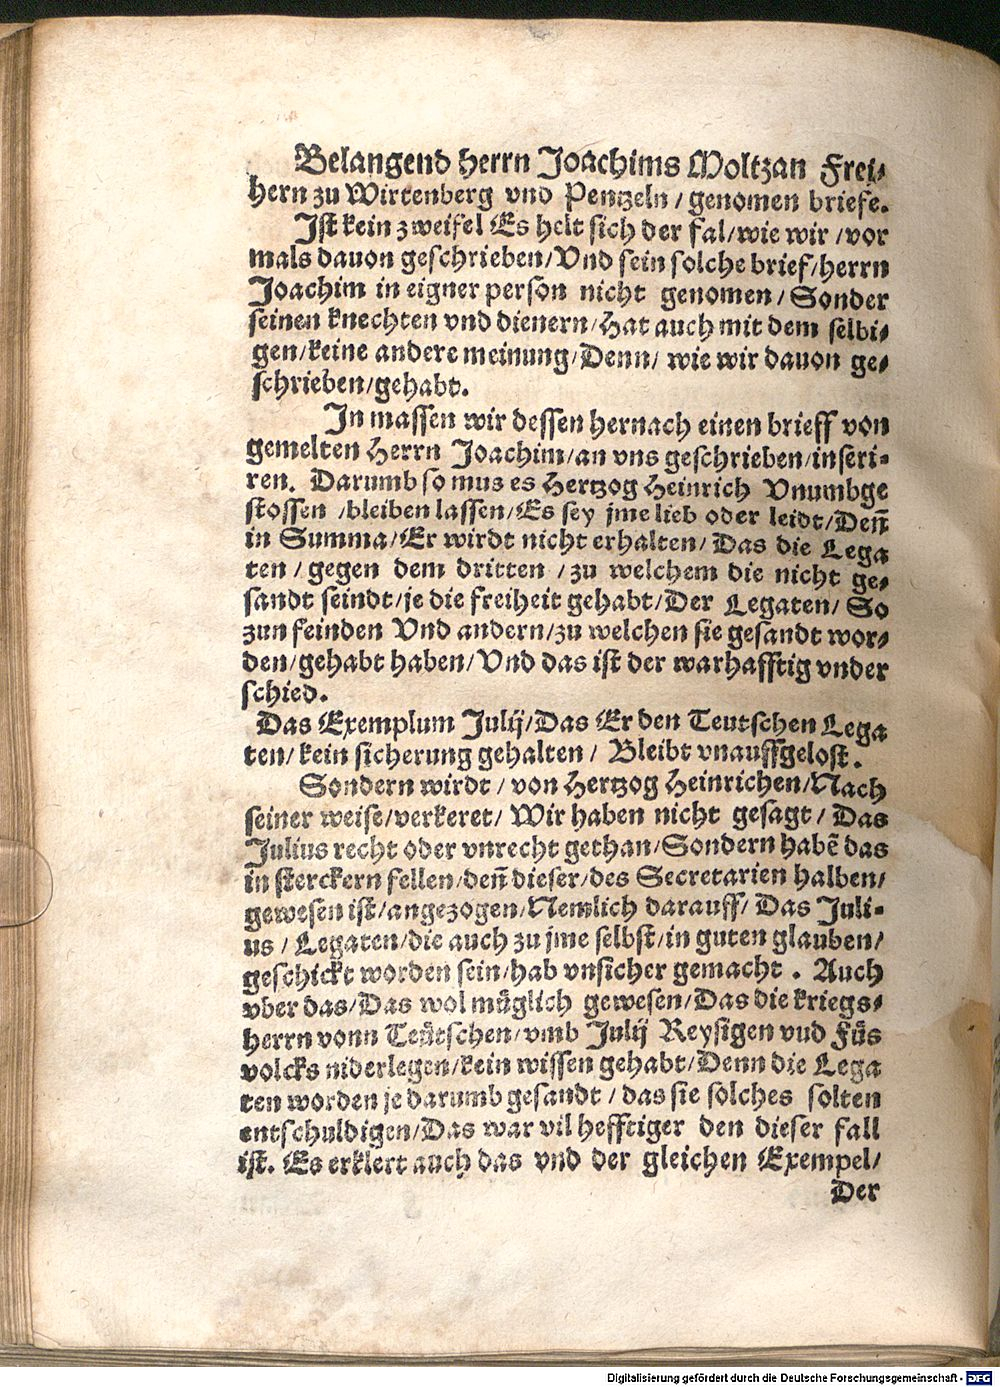 Belangend herrn Joachims Moltzan Frei⸗
hern zu Wirtenberg vnd Pentzeln / genomen briefe.
Jst kein zweifel Es helt sich der fal/wie wir /vor
mals dauon geschrieben/Vnd sein solche brief/herrn
Joachim in eigner person nicht genomen/ Sonder
seinen knechten vnd dienern/Hat auch mit dem selbi⸗
gen/keine andere meinung/Denn/ wie wir dauon ge⸗
schrieben/gehabt.
Jn massen wir dessen hernach einen brieff von
gemelten Herrn Joachim/an vns geschrieben/inseri⸗
ren. Darumb so mus es Hertzog Heinrich Vnumbge
stossen /bleiben lassen/Es sey jme lieb oder leidt/Deñ
in Summa/Er wirdt nicht erhalten/ Das die Lega
ten / gegen dem dritten /zu welchem die nicht ge⸗
sandt seindt/je die freiheit gehabt/Der Legaten/ So
zun feinden Vnd andern/zu welchen sie gesandt wor⸗
den/gehabt haben/Vnd das ist der warhafftig vnder
schied.
Das Exemplum Julij/Das Er den Teutschen Lega
ten/ kein sicherung gehalten / Bleibt vnauffgelost.
Sondern wirdt / von Hertzog Heinrichen/Nach
seiner weise/verkeret/ Wir haben nicht gesagt / Das
Julius recht oder vnrecht gethan/Sondern habẽ das
in sterckern fellen/deñ dieser/des Secretarien halben/
gewesen ist/angezogen/Nemlich darauff/ Das Juli⸗
us / Legaten/die auch zu jme selbst/in guten glauben/
geschickt worden sein/hab vnsicher gemacht . Auch
vber das/Das wol müglich gewesen/Das die kriegs⸗
herrn vonn Teütschen/vmb Julij Reysigen vnd Füs
volcks niderlegen/kein wissen gehabt/Denn die Lega
ten worden je darumb gesandt / das sie solches solten
entschuldigen/Das war vil hefftiger den dieser fall
ist. Es erklert auch das vnd der gleichen Exempel/
Der
Digitalisierung gefördert durch die Deutsche Forschungsgemeinschaft - DFG